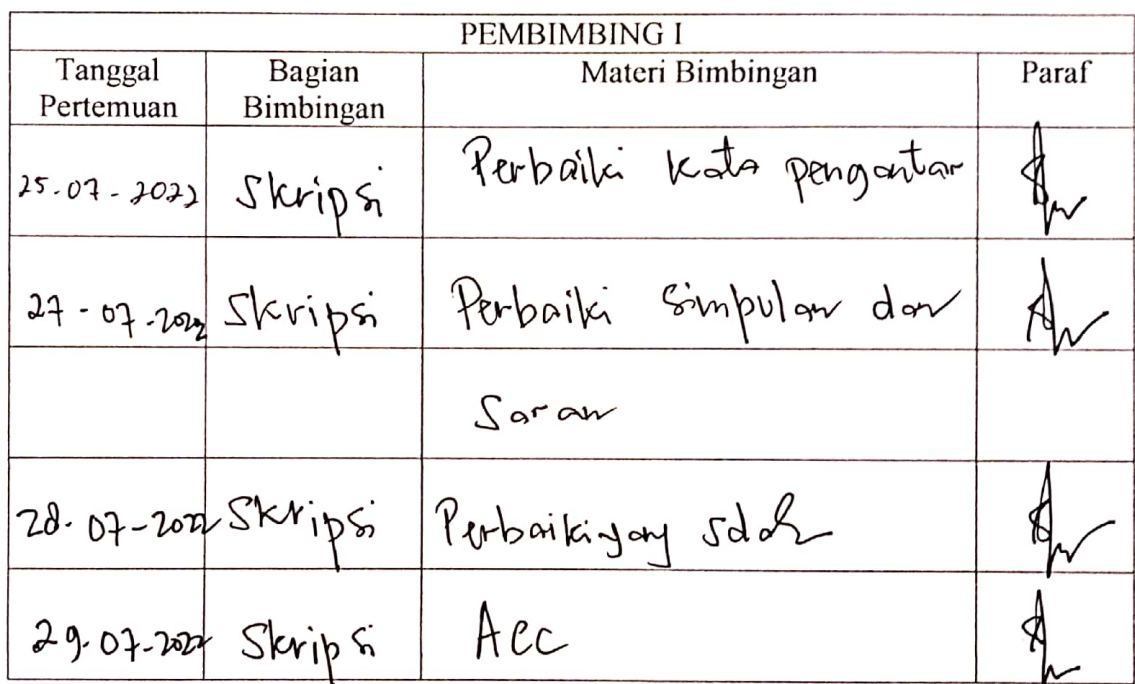 PEMBIMBING I
Tanggal Pertemuan Bagian Bimbingan Materi Bimbingan Paraf
25-07-2022 Skripsi Perbaiki kata pengantar
27-07-2022 Skripsi Perbaiki simpulan dan
Saran
28-07-2022 Skripsi Perbaiki yang
29-07-2022 Skripsi Acc